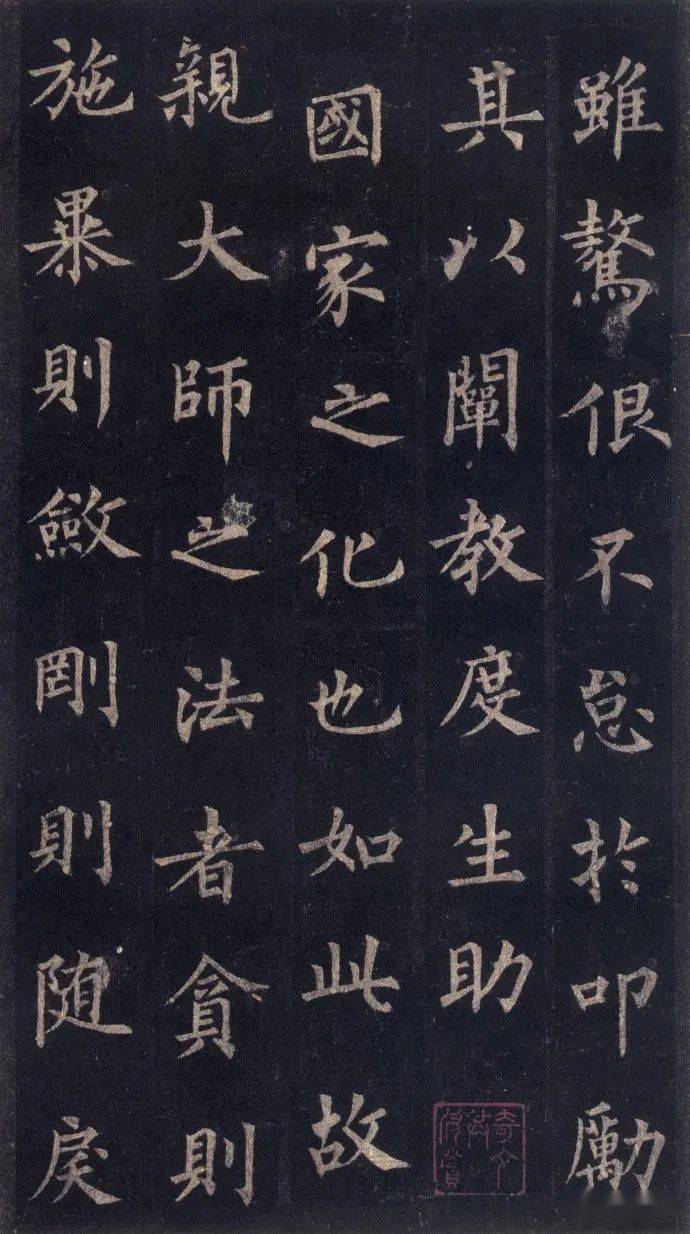 雖驁佷不怠於叩勵
其以闡教度生助
國家之化也如此故
親大師之法者貪則
施暴則斂剛則隨戾